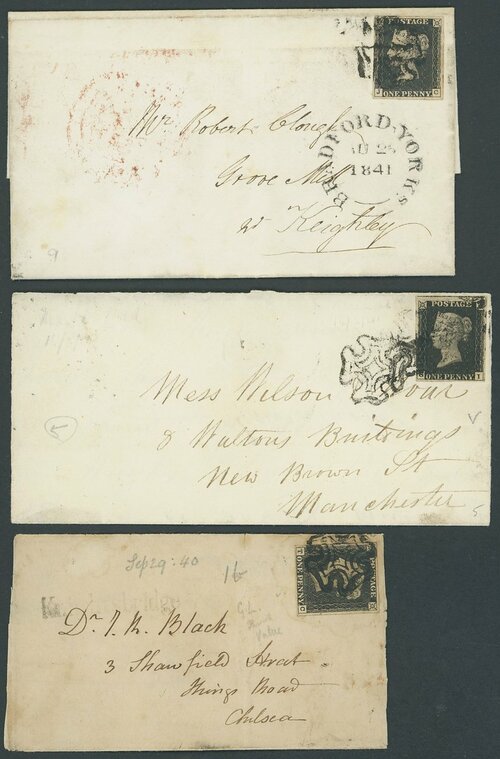 POSTAGE
J C
ONE PENNY
Mr Robert Clough
Grove Mill
nr Keighley
BRADFORD·YORKS
1841
9
POSTAGE
J I
ONE PENNY
Mess Wilson
& Waltons Buildings
New Brown St
Manchester
5
Sep 29: 40
16
POSTAGE
ONE PENNY
Dr. J. R. Black
3 Shawfield Street
Kings Road
Chelsea